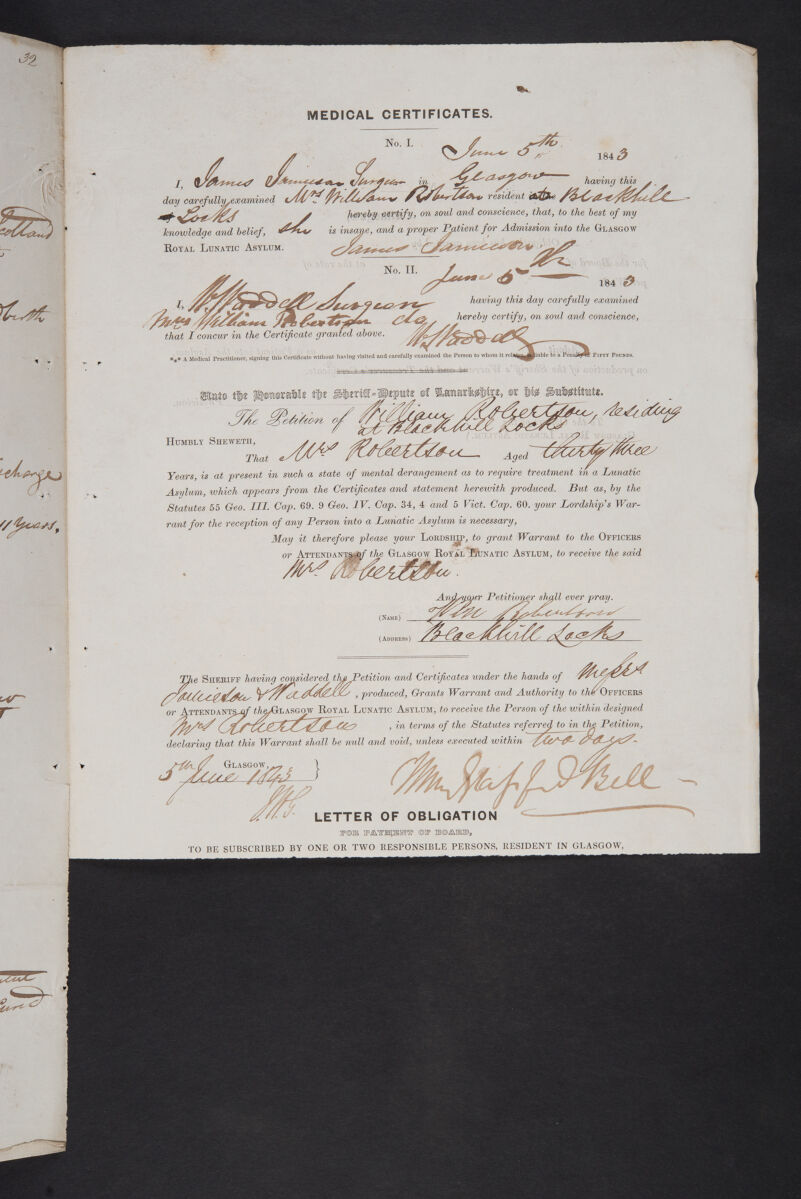 32
MEDICAL CERTIFICATES.
No. I.
June 5th 1843
I, James Jamieson Surgeon in Glasgow having this
day carefully examined Mrs William Robertson resident at Blackhill
Locks hereby certify, on soul and conscience, that, to the best of my
knowledge and belief, she is insane, and a proper Patient for Admission into the GLASGOW
ROYAL LUNATIC ASYLUM. James Jamieson
No. II.
June 5th 1843
I, W. Waddell Surgeon having this day carefully examined
Mrs William Robertson do hereby certify, on soul and conscience,
that I concur in the Certificate granted above. W Waddell
*** A Medical Practitioner, signing this Certificate without having visited and carefully examined the Person to whom it relates, is liable to a Penalty of FIFTY POUNDS.
Unto the Honorable the Sheriff-Depute of Lanarkshire, or his Substitute.
The Petition of William Robertson, residing
at Blackhill Locks
HUMBLY SHEWETH,
That Mrs Robertson Aged thirty three
Years, is at present in such a state of mental derangement as to require treatment in a Lunatic
Asylum, which appears from the Certificates and statement herewith produced. But as, by the
Statutes 55 Geo. III. Cap. 69. 9 Geo. IV. Cap. 34, 4 and 5 Vict. Cap. 60. your Lordship's War-
rant for the reception of any Person into a Lunatic Asylum is necessary,
May it therefore please your LORDSHIP, to grant Warrant to the OFFICERS
or ATTENDANTS of the GLASGOW ROYAL LUNATIC ASYLUM, to receive the said
Mrs. Robertson.
And your Petitioner shall ever pray.
(NAME) Wm Robertson
(ADDRESS) Blackhill Locks
The SHERIFF having considered the Petition and Certificates under the hands of Messrs
Jamieson & Waddell, produced, Grants Warrant and Authority to the OFFICERS
or ATTENDANTS of the GLASGOW ROYAL LUNATIC ASYLUM, to receive the Person of the within designed
Mrs Robertson, in terms of the Statutes referred to in the Petition,
declaring that this Warrant shall be null and void, unless executed within two days.
GLASGOW, }
5th June 1843
Bell
LETTER OF OBLIGATION
FOR PAYMENT OF BOARD,
TO BE SUBSCRIBED BY ONE OR TWO RESPONSIBLE PERSONS, RESIDENT IN GLASGOW,